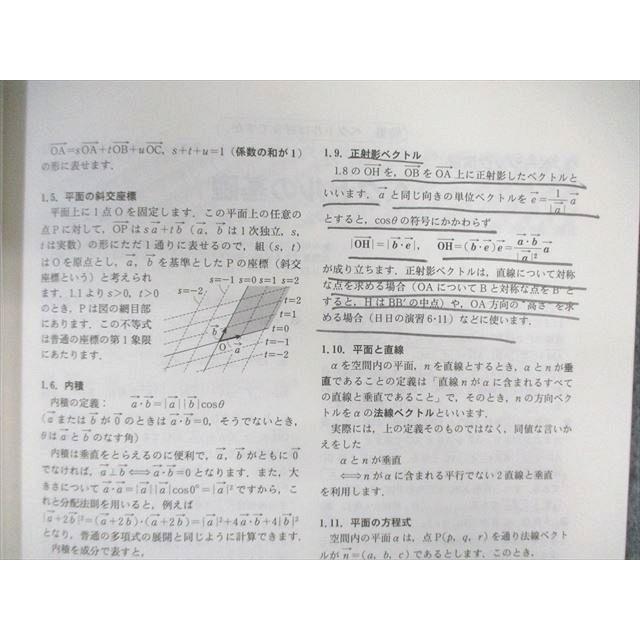 OA=sOA+tOB+uOC, s+t+u=1 (係数の和が1)
の形に表せます.
1.5. 平面の斜交座標
平面上に1点Oを固定します. この平面上の任意の
点Pに対して, OPはsa+tb (a, bは1次独立, s,
tは実数) の形にただ1通りに表せるので, 組(s, t)
はOを原点とし, a, bを基準としたPの座標 (斜交
座標という) と考えられ
ます. 1.1よりs>0, t>0
のとき, Pは図の網目部
にあります. この不等式
は普通の座標の第1象限
にあたります.
s=-2
s=-1 s=0 s=1 s=2
t=2
t=1
t=0
t=-1
t=-2
b
O
a
1.6. 内積
内積の定義: a・b=|a||b|cosθ
(aまたはbが0のときはa・b=0, そうでないとき,
θはaとbのなす角)
内積は垂直をとらえるのに便利で, a, bがともに0
でなければ, a⊥b⇔a・b=0となります. また, 大
きさについてa・a=|a||a|cos0°=|a|²ですから, こ
れと分配法則を用いると, 例えば
|a+2b|²=(a+2b)・(a+2b)=|a|²+4a・b+4|b|²
となり, 普通の多項式の展開と同じように計算できます.
内積を成分で表すと,
1.9. 正射影ベクトル
1.8のOHを, OBをOA上に正射影したベクトルと
いいます. aと同じ向きの単位ベクトルをe=1/|a| a
とすると, cosθの符号にかかわらず
|OH|=|b・e|, OH=(b・e)e=a・b/|a|² a
が成り立ちます. 正射影ベクトルは, 直線について対称
な点を求める場合 (OAについてBと対称な点をB'と
すると, HはBB'の中点) や, OA方向の“高さ”を求
める場合 (日日の演習6・11) などに使います.
1.10. 平面と直線
αを空間内の平面, nを直線とするとき, αとnが垂
直であることの定義は「直線nがαに含まれるすべて
の直線と垂直であること」で, そのとき, nの方向ベク
トルをαの法線ベクトルといいます.
実際には, 上の定義そのものではなく, 同値な言いか
えをした
αとnが垂直
⇔nがαに含まれる平行でない2直線と垂直
を利用します.
1.11. 平面の方程式
空間内の平面αは, 点P(p, q, r)を通り法線ベクト
ルがn=(a, b, c)であるとします. このとき,